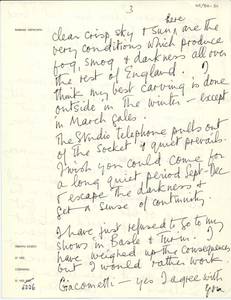 3
clear crisp sky & sun here are the
very conditions which produce
fog, smog & darkness all over
the rest of England. I
think my best carving is done
outside in the winter – except
in March gales.
The Studio telephone pulls out
of the socket & quiet prevails.
I wish you could come for
a long quiet period Sept–Dec
& escape the darkness &
get a sense of continuity.
I have just refused to go to my
shows in Basle & Turin. I
have weighed up the consequences
but I would rather work.
Giacometti – yes I agree with
you